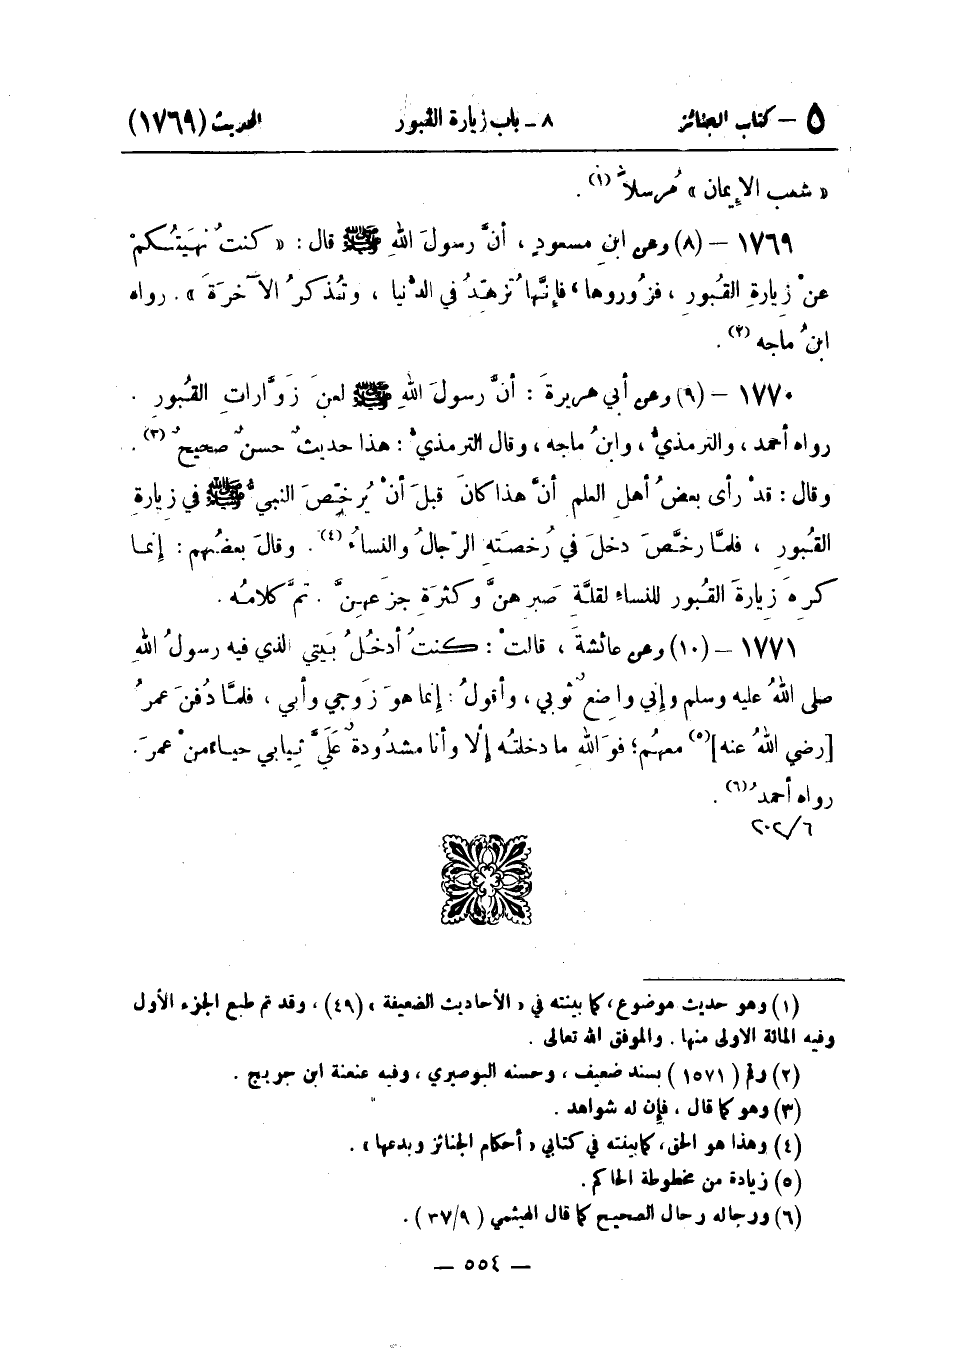 ٥ – كتاب الجنائز ٨ – باب زيارة القبور الحديث (١٧٦٩)
« شعب الإيمان » مُرسلاً (١) .
١٧٦٩ – (٨) وعن ابنِ مسعودٍ ، أنَّ رسولَ اللهِ ﷺ قال : « كنتُ نهيَتُكمْ
عنْ زيارةِ القُبورِ ، فزُوروها ، فإنَّها تُزهِّدُ في الدُّنيا ، وتُذكِّرُ الآخرَةَ » . رواه
ابنُ ماجه (٢) .
١٧٧٠ – (٩) وعن أبي هريرةَ : أنَّ رسولَ اللهِ ﷺ لعنَ زَوَّاراتِ القُبورِ .
رواه أحمد ، والترمذيُّ ، وابنُ ماجه ، وقال الترمذيُّ : هذا حديثٌ حسنٌ صحيحٌ (٣) .
وقال : قدْ رأى بعضُ أهلِ العلمِ أنَّ هذا كانَ قبلَ أنْ يُرخِّصَ النبيُّ ﷺ في زيارةِ
القبورِ ، فلمَّا رخَّصَ دخلَ في رُخصَتهِ الرِّجالُ والنساءُ (٤) . وقالَ بعضُهم : إنما
كرِهَ زيارةَ القُبورِ للنساءِ لقلَّةِ صبرِهنَّ وكثرَةِ جزعِهنَّ . تمَّ كلامُه .
١٧٧١ – (١٠) وعن عائشةَ ، قالتْ : كنتُ أدخُلُ بَيتي الذي فيه رسولُ اللهِ
صلى اللهُ عليه وسلم وإني واضعٌ ثوبي ، وأقولُ : إنما هو زَوجي وأبي ، فلمَّا دُفنَ عمرُ
[رضي اللهُ عنه] (٥) معهُم ؛ فوَاللهِ ما دخلتُه إلا وأنا مشدُودةٌ عَليَّ ثيابي حياءً منْ عمرَ .
رواه أحمدُ (٦) .
٢٠٢/٦
(١) وهو حديث موضوع ، كما بينته في « الأحاديث الضعيفة » (٤٩) ، وقد تم طبع الجزء الأول
وفيه المائة الاولى منها . والموفق الله تعالى .
(٢) رقم ( ١٥٧١ ) بسند ضعيف ، وحسنه البوصيري ، وفيه عنعنة ابن جريج .
(٣) وهو كما قال ، فإن له شواهد .
(٤) وهذا هو الحق ، كما بينته في كتابي « أحكام الجنائز وبدعها » .
(٥) زيادة من مخطوطة الحاكم .
(٦) ورجاله رجال الصحيح كما قال الهيثمي ( ٣٧/٩ ) .
— ٥٥٤ —